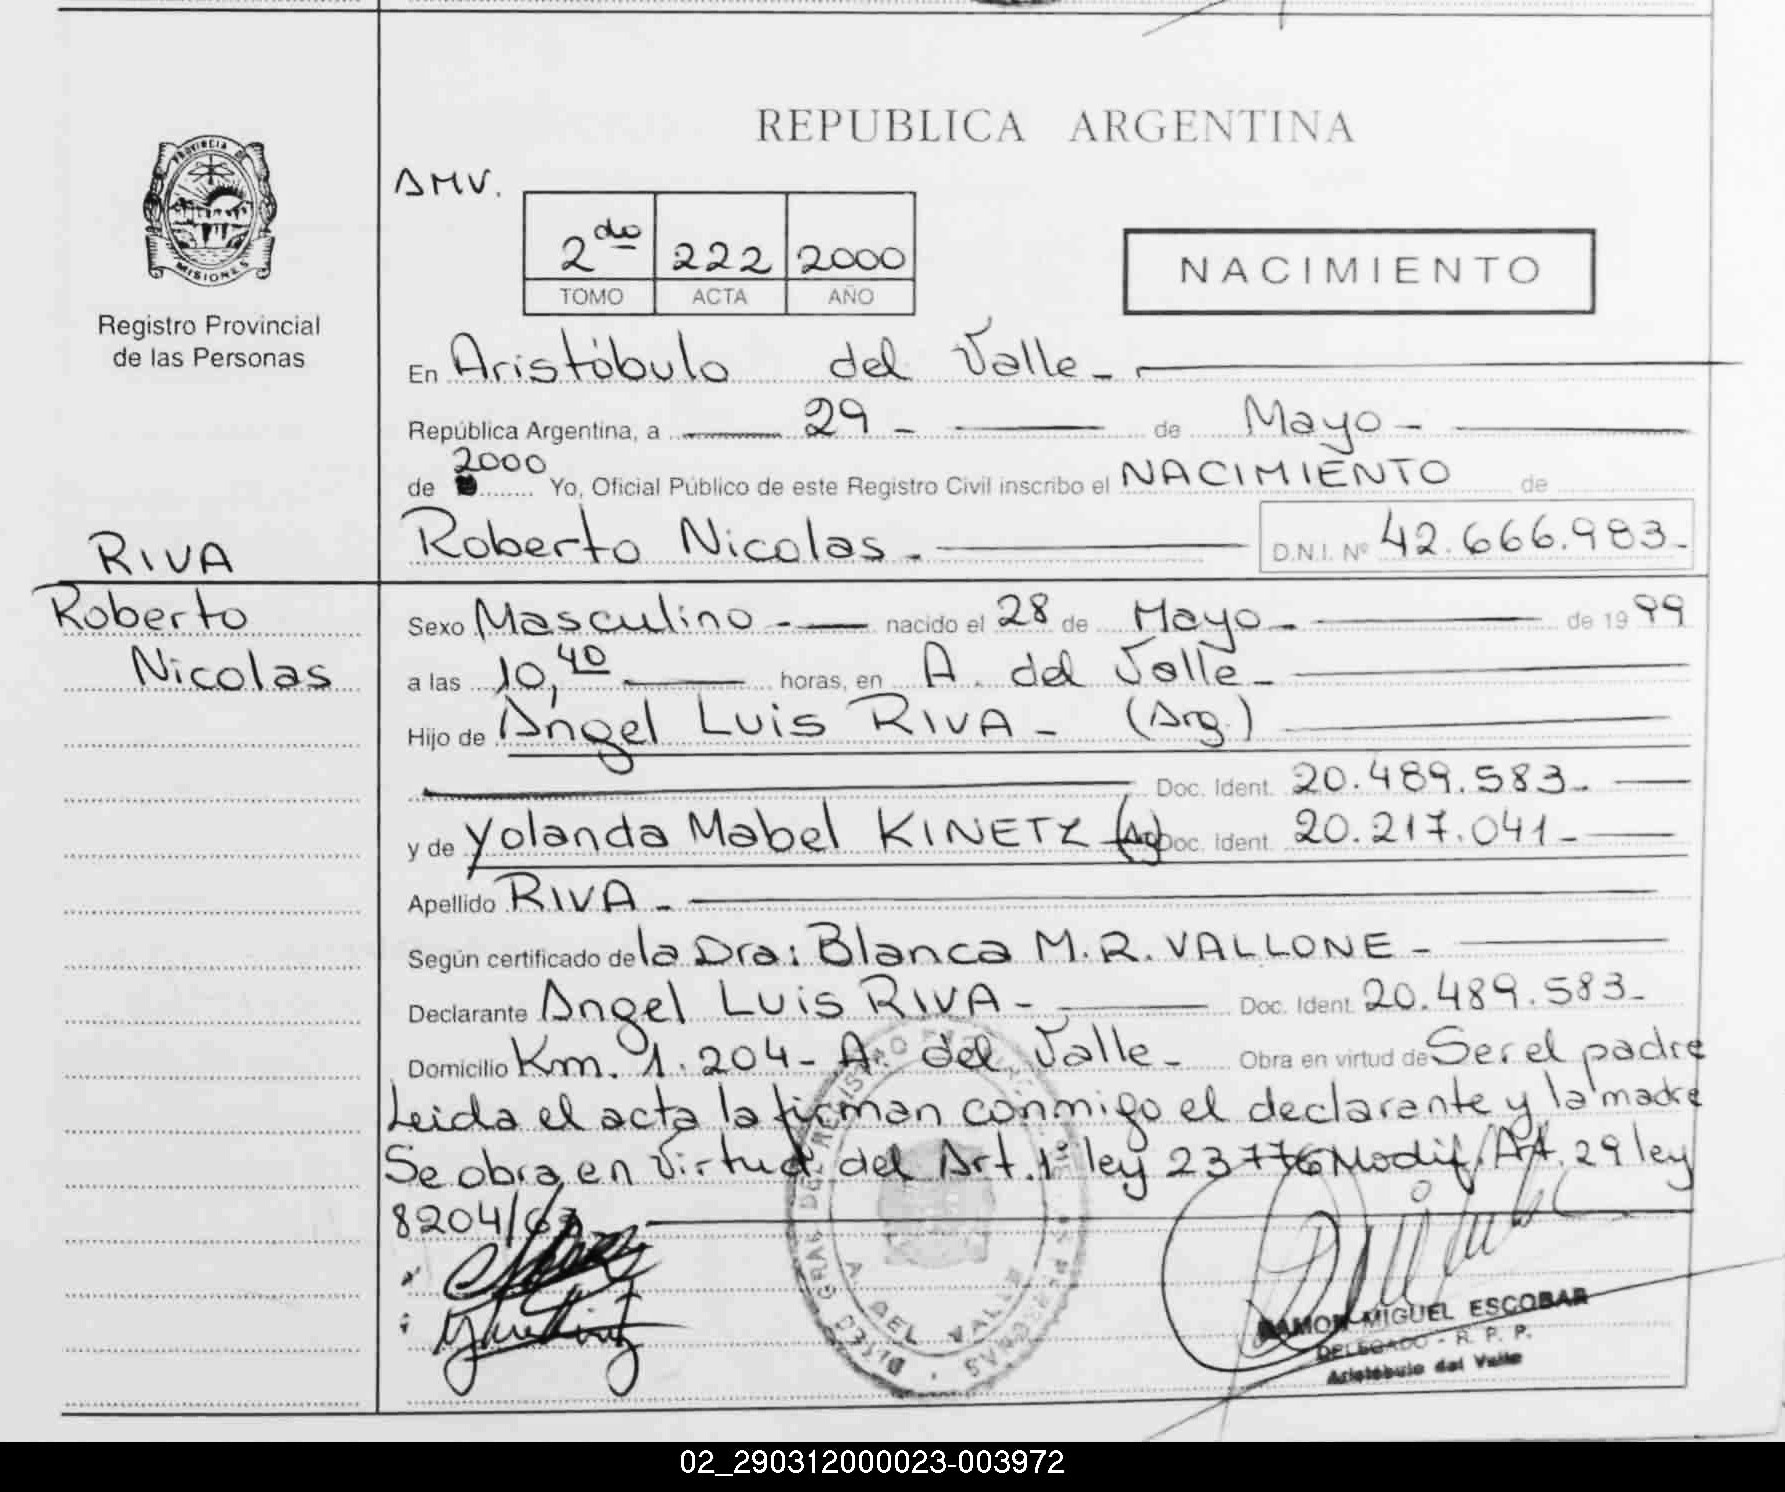 REPUBLICA ARGENTINA
PROVINCIA DE
MISIONES
Registro Provincial
de las Personas
AMV.
2do 222 2000
TOMO ACTA AÑO
NACIMIENTO
En Aristóbulo del Valle -
República Argentina, a 29 - de Mayo -
2000
de Yo, Oficial Público de este Registro Civil inscribo el NACIMIENTO de
Roberto Nicolas - D.N.I. Nº 42.666.983-
RIVA
Roberto
Nicolas
Sexo Masculino - nacido el 28 de Mayo - de 1999
a las 10,40 horas, en A. del Valle -
Hijo de Angel Luis RIVA - (Arg.)
Doc. Ident. 20.489.583-
y de Yolanda Mabel KINETZ (Ag) Doc. Ident. 20.217.041-
Apellido RIVA -
Según certificado de la Dra: Blanca M.R. VALLONE -
Declarante Angel Luis RIVA - Doc. Ident. 20.489.583-
Domicilio Km. 1.204 - A. del Valle - Obra en virtud de Ser el padre
Leida el acta la firman conmigo el declarante y la madre
Se obra en virtud del Art. 1 ley 23776 Modif. Art. 29 ley
8204/63
A. DEL VALLE
RAMON MIGUEL ESCOBAR
DELEGADO - R. P. P.
Aristóbulo del Valle
02_290312000023-003972